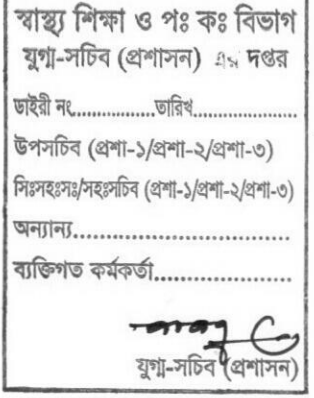 স্বাস্থ্য শিক্ষা ও পঃ কঃ বিভাগ
যুগ্ম-সচিব (প্রশাসন) এর দপ্তর
ডাইরী নং...............তারিখ...................
উপসচিব (প্রশা-১/প্রশা-২/প্রশা-৩)
সিঃসহঃসঃ/সহঃসচিব (প্রশা-১/প্রশা-২/প্রশা-৩)
অন্যান্য.......................................
ব্যক্তিগত কর্মকর্তা.........................
যুগ্ম-সচিব (প্রশাসন)